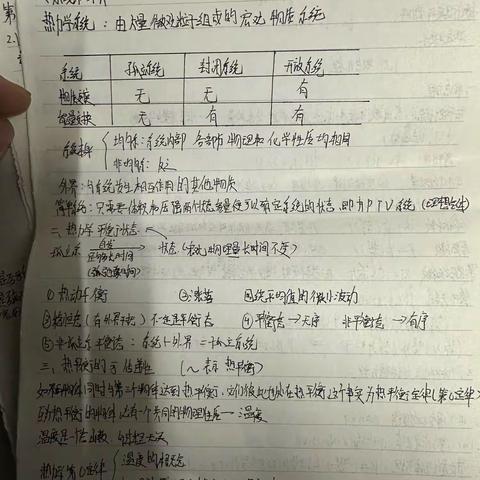 第
热力学系统：由大量微观粒子组成的宏观物质系统
系统 孤立系统 封闭系统 开放系统
物质交换 无 无 有
能量交换 无 有 有
均匀系：系统内部各部分物理和化学性质均相同
非均匀系：反之
外界：与系统发生相互作用的其他物质
简单系统：只需要体积和压强两个状态参量便可以确定系统的状态，即为PTV系统
二、热力学平衡状态
孤立系 自发 足够长时间 状态（宏观物理量长时间不变）
①热动平衡 ②涨落 统计平均值的微小波动
③稳恒态（有外界干扰）不一定是平衡态 ④平衡态→无序 非平衡态→有序
⑤非孤立系平衡态：系统+外界=孤立系统
三、热平衡的可传递性（～表示热平衡）
如果两物体同时与第三个物体达到热平衡，它们彼此也处在热平衡，这个事实为热平衡定律（第0定律）
互为热平衡的物体必有一个共同的物理性质—温度
温度是一个态函数，与过程无关
热力学第0定律 温度的概念